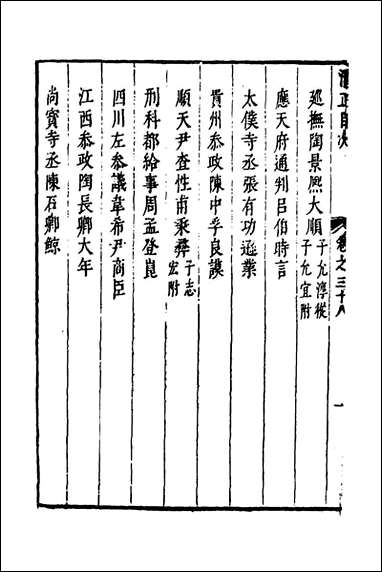 卷之三十八
一
廵撫陶景熈大順 子允淳從子允宜附
應天府通判呂伯時言
太僕寺丞張有功遜業
貴州叅政陳中孚良謨
順天尹查性甫秉彝 子志宏附
刑科都給事周孟登崑
四川左叅議韋希尹商臣
江西叅政陶長卿大年
尚寳寺丞陳石卿鯨